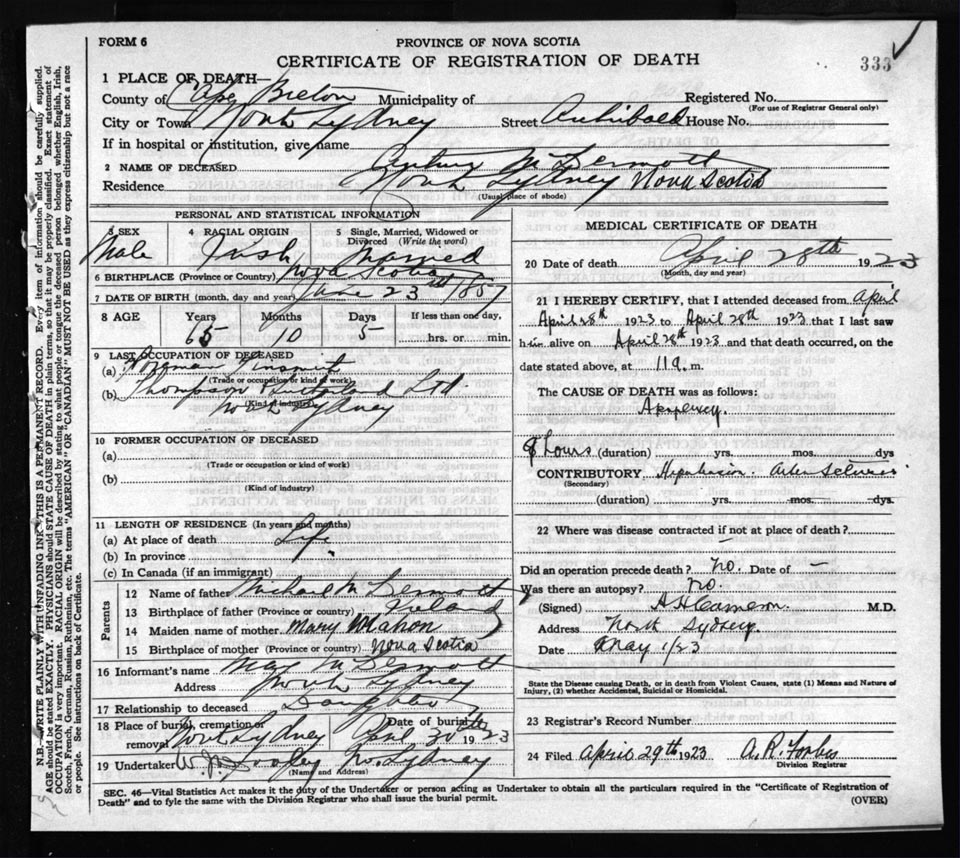 FORM 6
PROVINCE OF NOVA SCOTIA
CERTIFICATE OF REGISTRATION OF DEATH
333
1 PLACE OF DEATH—
County of Cape Breton Municipality of Registered No.
(For use of Registrar General only)
City or Town North Sydney Street Archibald House No.
If in hospital or institution, give name
2 NAME OF DECEASED McDermott
Residence North Sydney Nova Scotia
(Usual place of abode)
PERSONAL AND STATISTICAL INFORMATION
3 SEX 4 RACIAL ORIGIN 5 Single, Married, Widowed or Divorced (Write the word)
Male Irish Married
6 BIRTHPLACE (Province or Country) Nova Scotia
7 DATE OF BIRTH (month, day and year) June 23rd 1857
8 AGE Years Months Days If less than one day,
65 10 5 hrs. or min.
9 LAST OCCUPATION OF DECEASED
(a) Foreman Tinsmith
(Trade or occupation or kind of work)
(b) Thompson Ltd
(Kind of industry)
North Sydney
10 FORMER OCCUPATION OF DECEASED
(a)
(Trade or occupation or kind of work)
(b)
(Kind of industry)
11 LENGTH OF RESIDENCE (In years and months)
(a) At place of death Life
(b) In province "
(c) In Canada (if an immigrant)
Parents
12 Name of father Michael McDermott
13 Birthplace of father (Province or country) Ireland
14 Maiden name of mother Mary Mahon
15 Birthplace of mother (Province or country) Nova Scotia
16 Informant's name McDermott
Address North Sydney
17 Relationship to deceased Daughter
18 Place of burial, cremation or removal North Sydney Date of burial April 30th 1923
19 Undertaker W. J. Dooley No. Sydney
(Name and Address)
MEDICAL CERTIFICATE OF DEATH
20 Date of death April 28th 1923
(Month, day and year)
21 I HEREBY CERTIFY, that I attended deceased from April
April 28th 1923 to April 28th 1923 that I last saw
him alive on April 28th 1923 and that death occurred, on
date stated above, at 11 a. m.
The CAUSE OF DEATH was as follows:
8 hours (duration) yrs. mos. dys
CONTRIBUTORY
(Secondary)
(duration) yrs. mos. dys.
22 Where was disease contracted if not at place of death?
Did an operation precede death? No. Date of —
Was there an autopsy? No.
(Signed) A H Cameron. M.D.
Address North Sydney.
Date May 1/23
State the Disease causing Death, or in death from Violent Causes, state (1) Means and Nature of
Injury, (2) whether Accidental, Suicidal or Homicidal.
23 Registrar's Record Number
24 Filed April 29th 1923 A. R. Forbes
Division Registrar
SEC. 46—Vital Statistics Act makes it the duty of the Undertaker or person acting as Undertaker to obtain all the particulars required in the "Certificate of Registration of
Death" and to fyle the same with the Division Registrar who shall issue the burial permit.
(OVER)
N.B.—WRITE PLAINLY WITH UNFADING INK—THIS IS A PERMANENT RECORD. Every item of information should be carefully supplied.
AGE should be stated EXACTLY. PHYSICIANS should STATE CAUSE OF DEATH in plain terms, so that it may be properly classified. Exact statement of
OCCUPATION is very important. RACIAL ORIGIN will be described by stating to what people or tongue the deceased person belonged whether English, Irish,
Scotch, French, German, Russian, Ruthenian, etc. The terms "AMERICAN" OR "CANADIAN" MUST NOT BE USED as they express citizenship but not a race
or people. See instructions on back of Certificate.